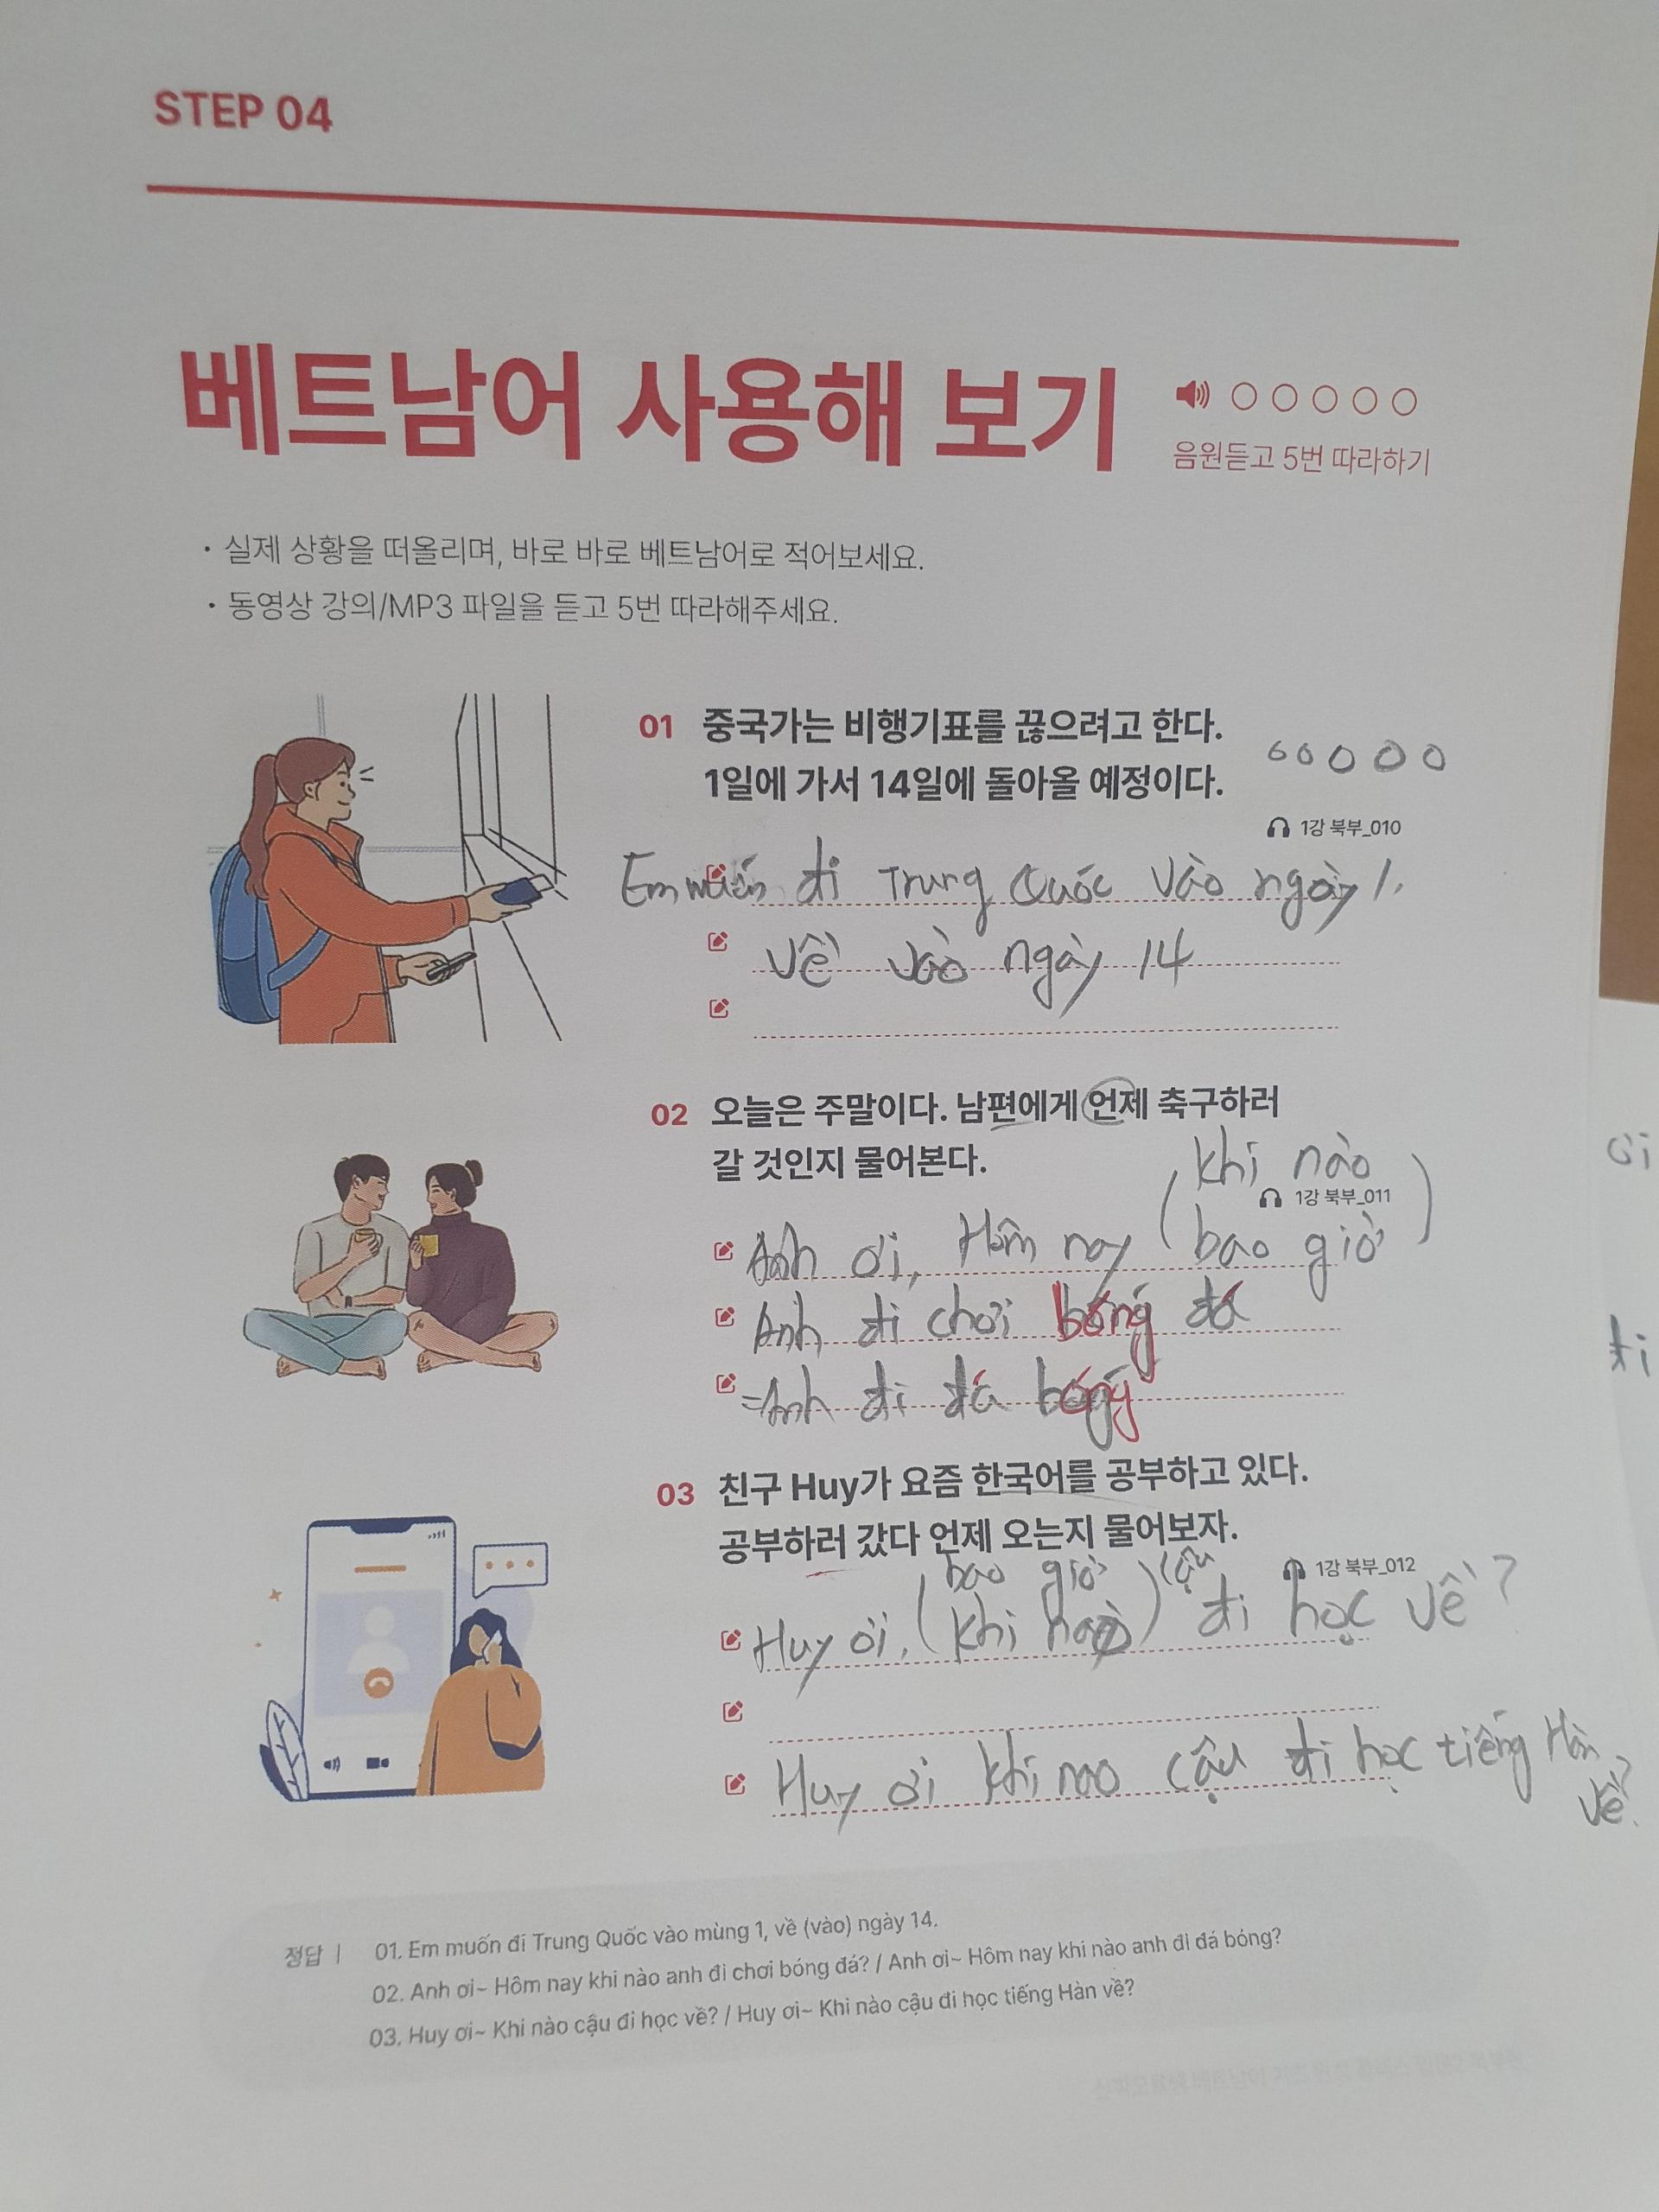 STEP 04
베트남어 사용해 보기
음원듣고 5번 따라하기
· 실제 상황을 떠올리며, 바로 바로 베트남어로 적어보세요.
· 동영상 강의/MP3 파일을 듣고 5번 따라해주세요.
01 중국가는 비행기표를 끊으려고 한다.
1일에 가서 14일에 돌아올 예정이다.
1강 북부_010
Em muốn đi Trung Quốc vào ngày 1,
về vào ngày 14
02 오늘은 주말이다. 남편에게 언제 축구하러
갈 것인지 물어본다.
khi nào
1강 북부_011
Anh ơi, Hôm nay (bao giờ)
Anh đi chơi bóng đá
=Anh đi đá bóng
03 친구 Huy가 요즘 한국어를 공부하고 있다.
공부하러 갔다 언제 오는지 물어보자.
bao giờ cậu
1강 북부_012
Huy ơi, (khi nào) đi học về?
Huy ơi khi nao cậu đi học tiếng Hàn
về?
정답 | 01. Em muốn đi Trung Quốc vào mùng 1, về (vào) ngày 14.
02. Anh ơi~ Hôm nay khi nào anh đi chơi bóng đá? / Anh ơi~ Hôm nay khi nào anh đi đá bóng?
03. Huy ơi~ Khi nào cậu đi học về? / Huy ơi~ Khi nào cậu đi học tiếng Hàn về?
ơi
đi